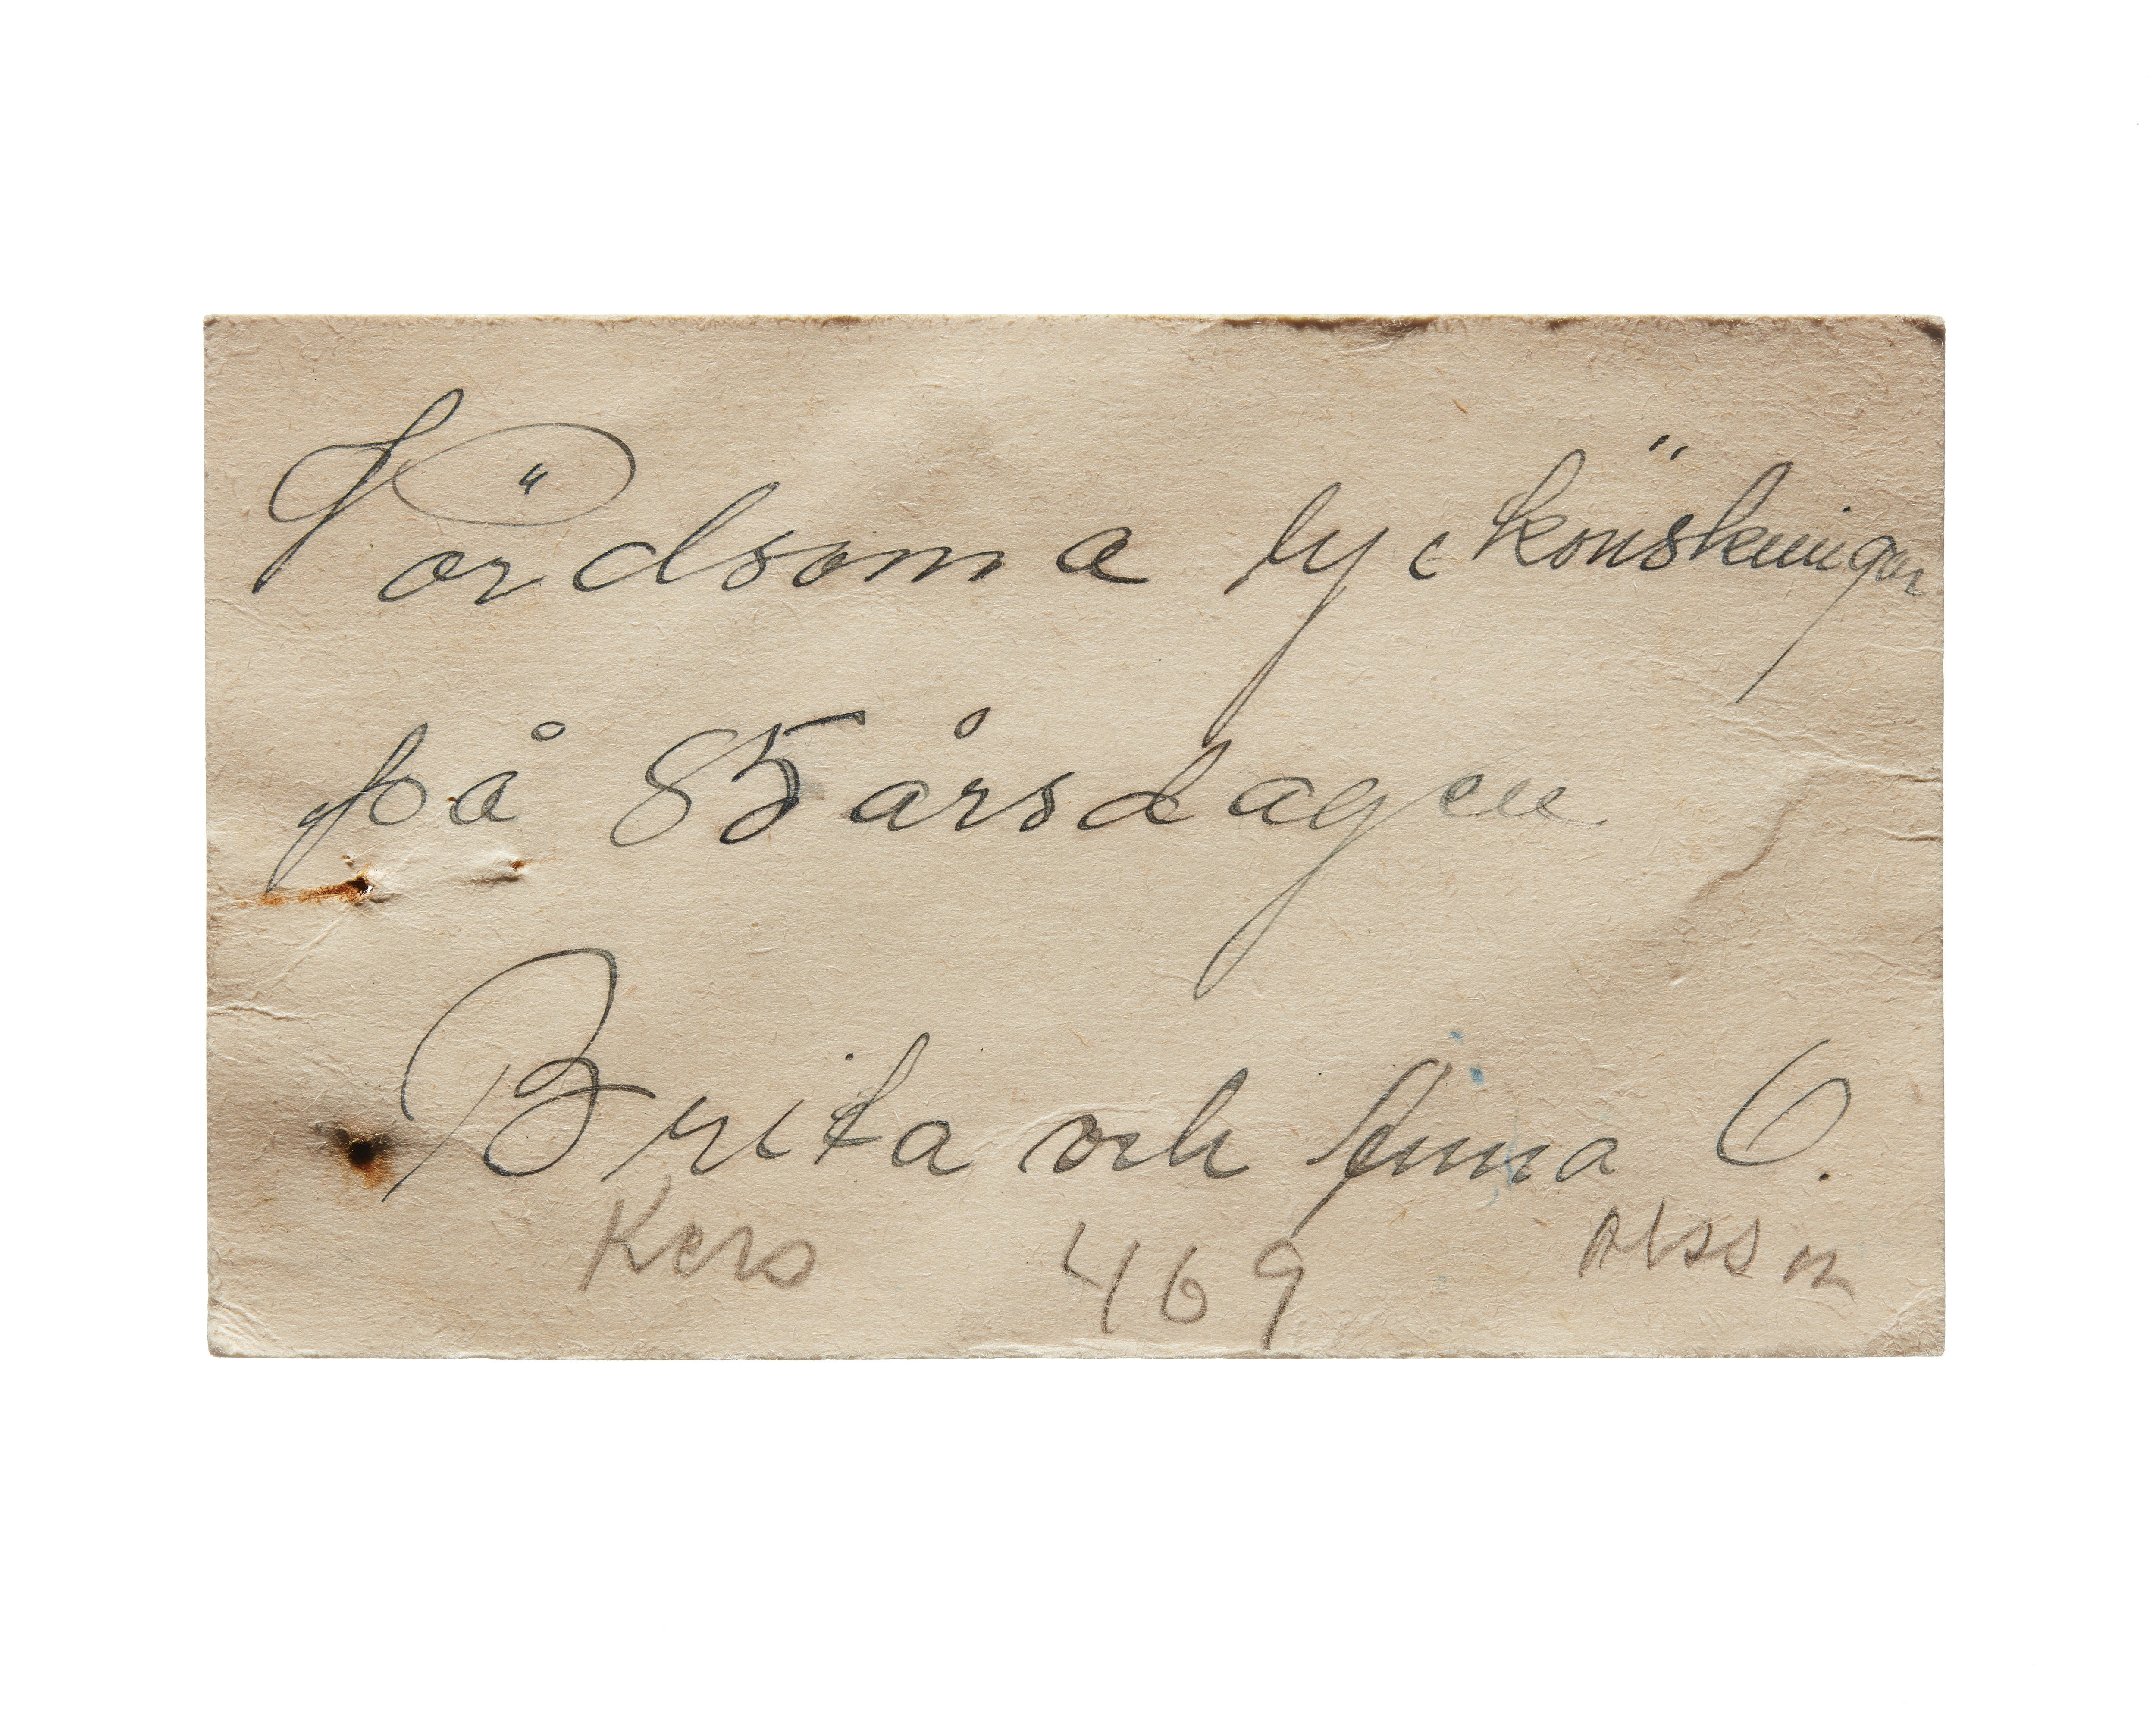 Vördsama lyckönskningar
på 85 årsdagen
Brita och Anna O.
Kers 469 Olsson